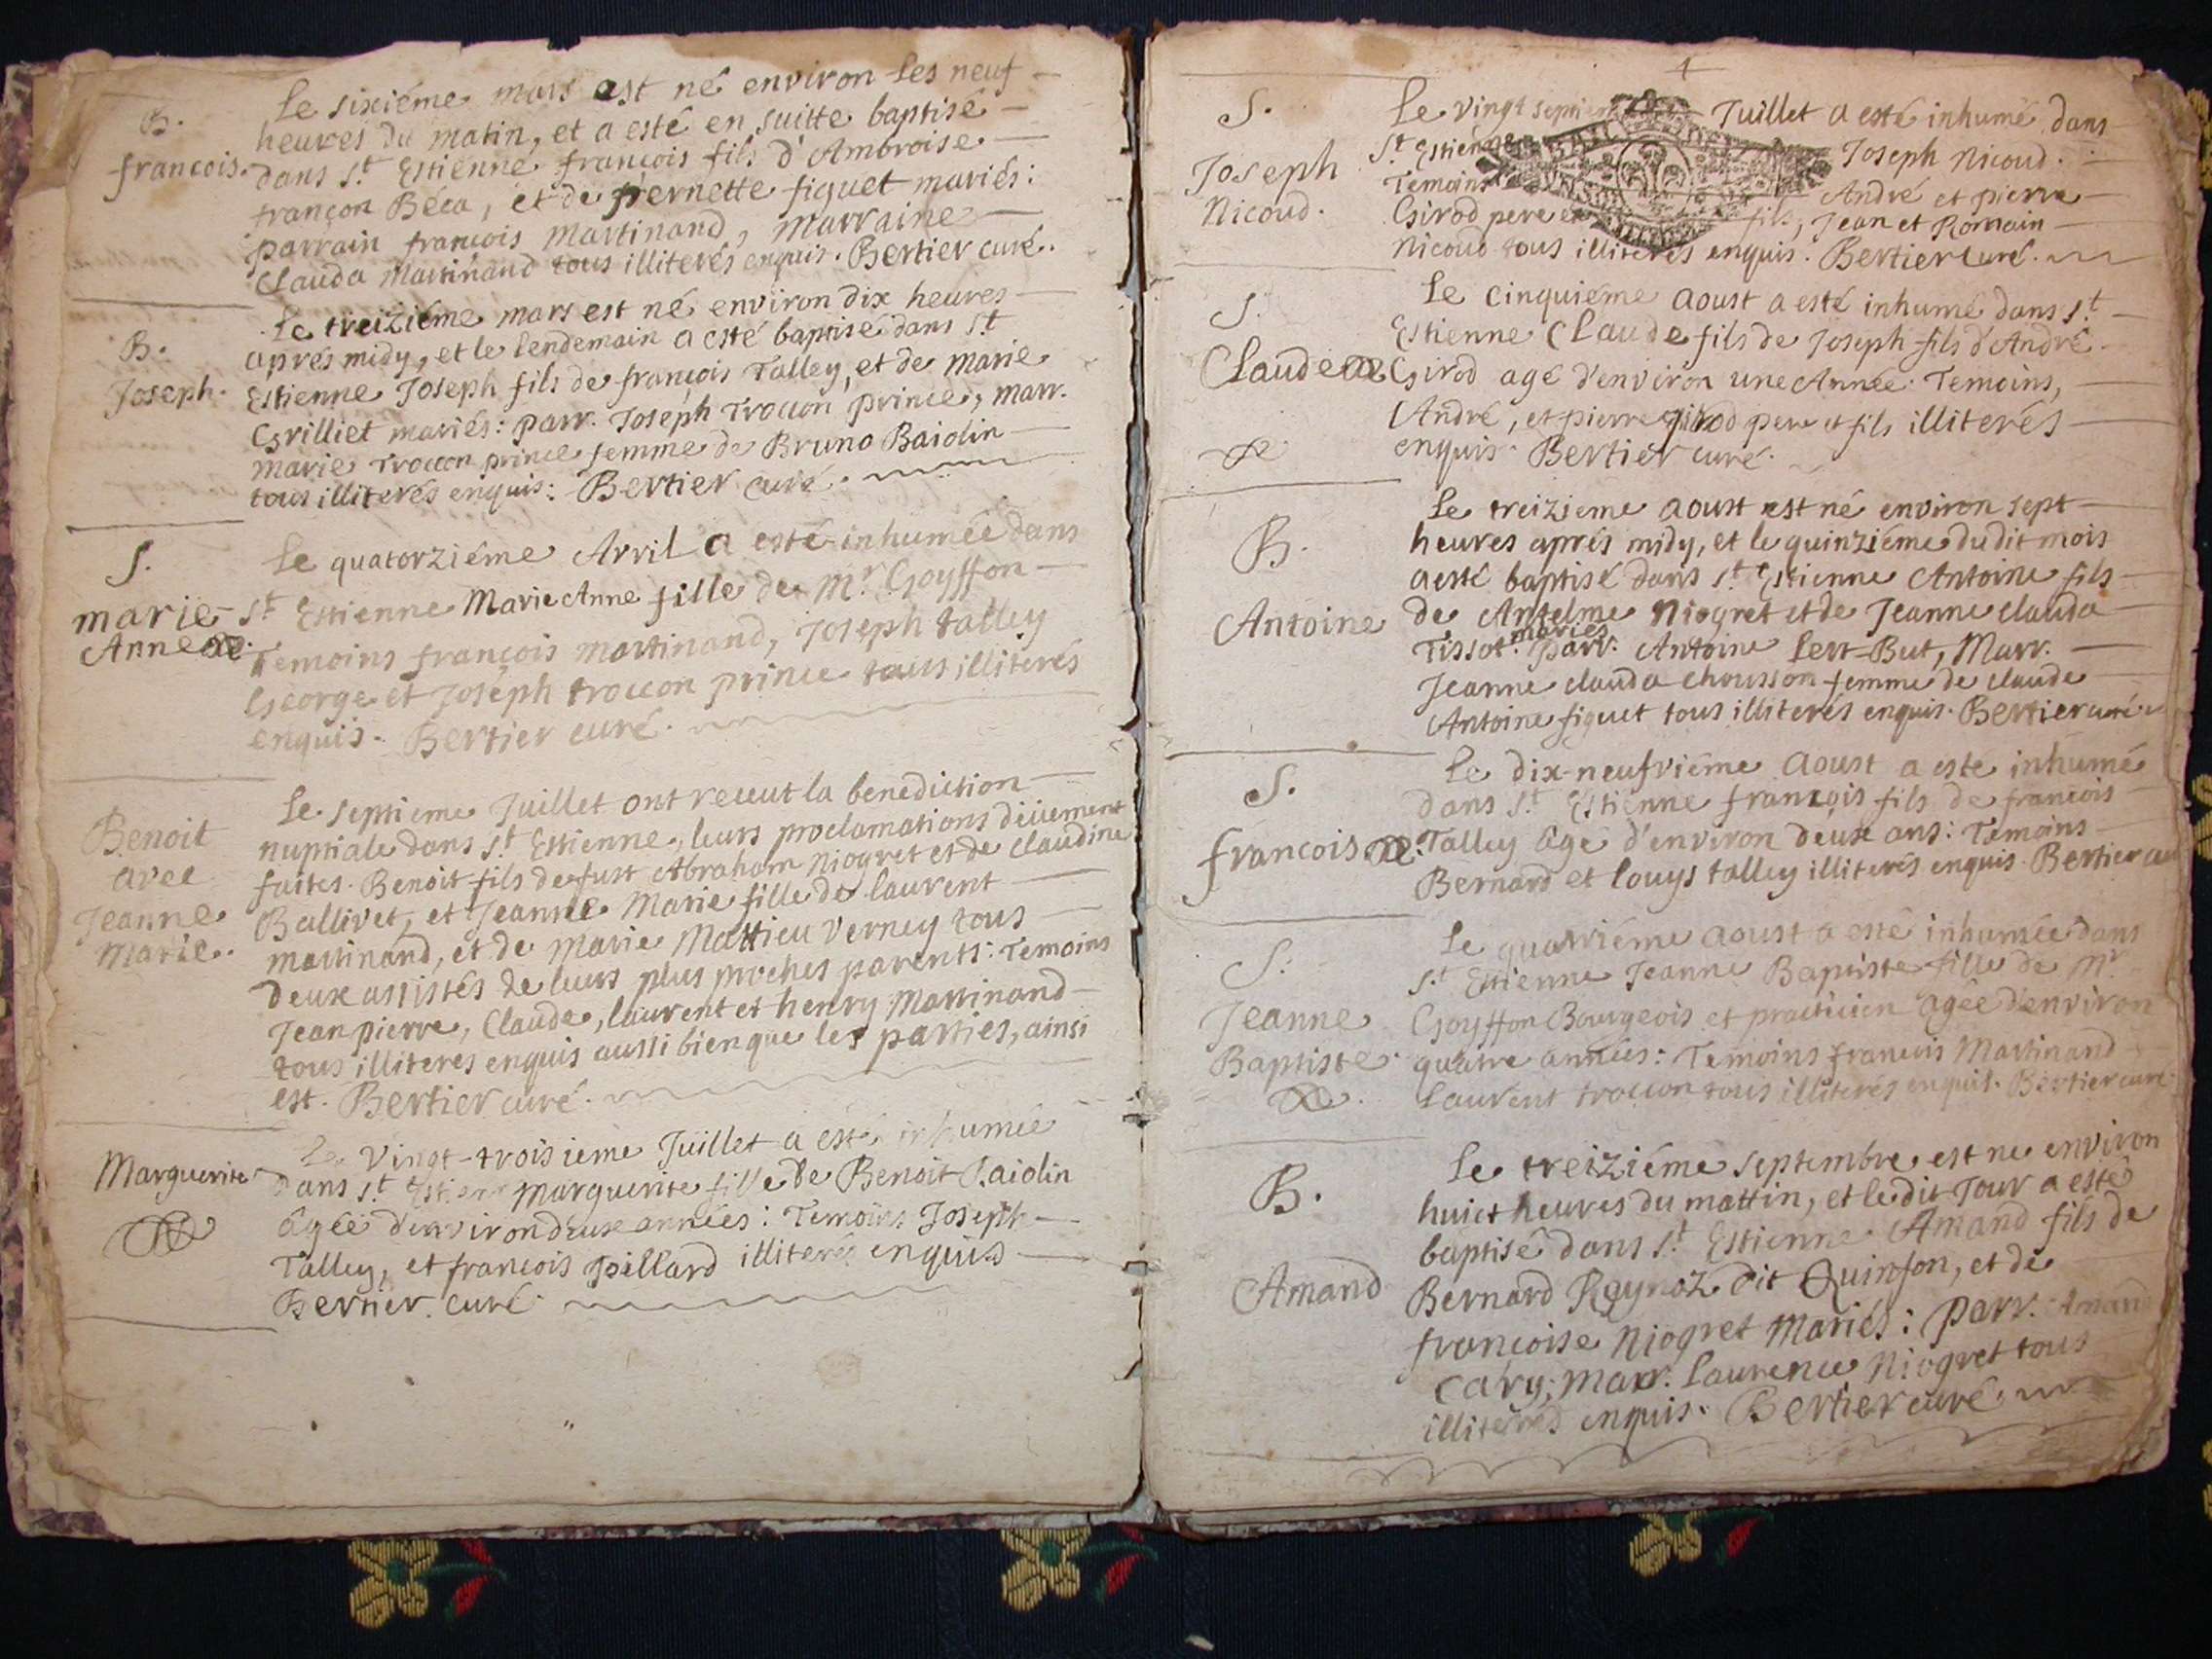 B.
francois.
Le sixiéme mars est né environ les neuf
heures du matin, et a esté en suitte baptisé
dans St Estienne françois fils d'Ambroise
françon Béca, et de pernette fiquet mariés:
parrain françois Martinand, Marraine
Clauda Martinand tous illiterés enquis. Bertier curé.
B.
Joseph.
Le treiziéme mars est né environ dix heures
aprés midy, et le lendemain a esté baptisé dans St
Estienne Joseph fils de françois Talley, et de marie
Grilliet mariés: parr. Joseph Troccon prince, marr.
marie Troccon prince femme de Bruno Baiolin
tous illiterés enquis: Bertier curé.
S.
marie-
Anne
Le quatorziéme Avril a esté inhumée dans
St Estienne Marie Anne fille de Mr. Goyffon
Temoins françois martinand, Joseph talley
George et Joseph troccon prince tous illiterés
enquis. Bertier curé.
Benoit
avec
Jeanne
Marie.
Le septieme Juillet ont receut la benediction
nuptiale dans St Estienne, leurs proclamations düement
faites. Benoit fils de fust Abraham Niogret et de Claudine
Ballivet, et Jeanne Marie fille de laurent
martinand, et de Marie Mattieu Verney tous
deux assistés de leurs plus proches parents: Temoins
Jean pierre, Claude, laurent et henry Martinand
tous illiteres enquis aussi bien que les parties, ainsi
est. Bertier curé.
Marguerite
Le Vingt-troisieme Juillet a esté inhumée
dans St Estienne Marguerite fille de Benoit Baiolin
âgée d'environ deux années: Temoins Joseph
Talley, et francois pillard illiterés enquis
Bertier curé.
S.
Joseph
Nicoud.
Le vingt septieme Juillet a esté inhumé dans
St Estienne Joseph Nicoud.
Temoins André et pierre
Girod pere et fils, Jean et Romain
Nicoud tous illiterés enquis. Bertier curé.
S.
Claude
Le cinquiéme Aoust a esté inhumé dans St
Estienne Claude fils de Joseph fils d'André
Girod agé d'environ une Année: Temoins,
André, et pierre girod pere et fils illiterés
enquis. Bertier curé.
B.
Antoine
Le treizieme aoust est né environ sept
heures aprés midy, et le quinziéme dudit mois
a esté baptisé dans St Estienne Antoine fils
de Antelme Niogret et de Jeanne clauda
Tissot. mariés parr. Antoine Lert-But, Marr.
Jeanne clauda chousson femme de claude
Antoine fiquet tous illiterés enquis. Bertier curé.
S.
francois
Le dix-neufviéme Aoust a esté inhumé
dans St Estienne francois fils de francois
Talley âgé d'environ deux ans: Temoins
Bernard et louys talley illiterés enquis. Bertier
S.
Jeanne
Baptiste.
Le quatriéme aoust a esté inhumée dans
St Estienne Jeanne Baptiste fille de Mr
Goyffon Bourgeois et practicien agée d'environ
quatre années: Temoins francois Martinand
Laurent troccon tous illiterés enquis. Bertier curé
B.
Amand
Le treiziéme septembre est ne environ
huict heures du mattin, et ledit Jour a esté
baptisé dans St Estienne Amand fils de
Bernard Reynoz dit Quinson, et de
francoise Niogret Mariés: parr. Amand
Cary; marr. Laurence Niogret tous
illiterés enquis. Bertier curé.